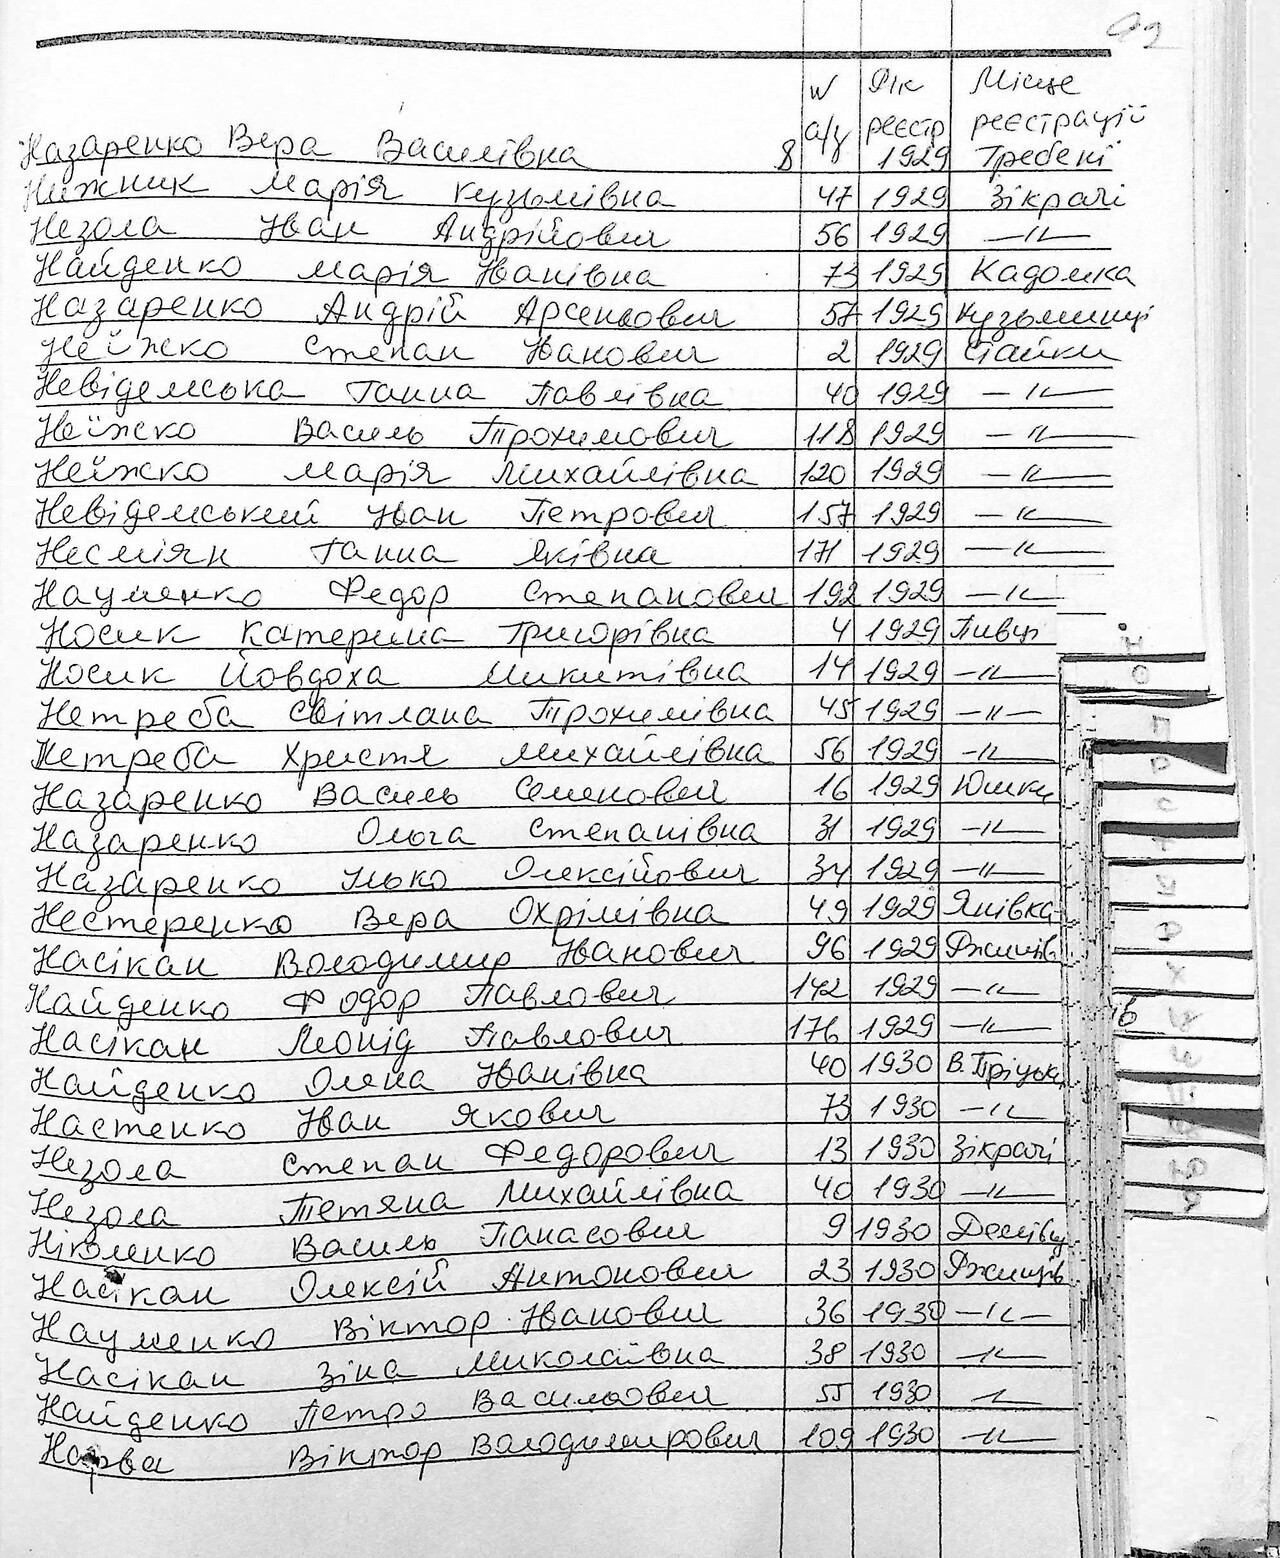 № а/з Рік реєстр Місце реєстрації
Назаренко Вера Василівна 8 1929 Гребені
Ніжник Марія Кузьмівна 47 1929 Зікрачі
Незола Іван Андрійович 56 1929 —"—
Найденко Марія Іванівна 73 1929 Кадомка
Назаренко Андрій Арсенович 57 1929 Кузьминці
Неїжко Степан Іванович 2 1929 Стайки
Невідемська Ганна Павлівна 40 1929 —"—
Неїжко Василь Трохимович 118 1929 —"—
Неїжко Марія Михайлівна 120 1929 —"—
Невідемський Іван Петрович 157 1929 —"—
Несміян Ганна Яківна 171 1929 —"—
Науменко Федор Степанович 192 1929 —"—
Носик Катерина Григорівна 4 1929 Півці
Носик Йовдоха Микитівна 14 1929 —"—
Нетреба Світлана Трохимівна 45 1929 —"—
Нетреба Христя Михайлівна 56 1929 —"—
Назаренко Василь Семенович 16 1929 Юшки
Назаренко Ольга Степанівна 31 1929 —"—
Назаренко Ілько Олексійович 34 1929 —"—
Нестеренко Вера Охрімівна 49 1929 Янівка
Насікан Володимир Іванович 96 1929 Ржищів
Найденко Фодор Павлович 142 1929 —"—
Насікан Леонід Павлович 176 1929 —"—
Найденко Олена Іванівна 40 1930 В. Пріцьки
Настенко Іван Якович 73 1930 —"—
Незола Степан Федорович 13 1930 Зікрачі
Незола Тетяна Михайлівна 40 1930 —"—
Ніколенко Василь Панасович 9 1930
Насікан Олексій Антонович 23 1930 Ржищів
Науменко Віктор Іванович 36 1930 —"—
Насікан Зіна Миколаївна 38 1930 —"—
Найденко Петро Васильович 55 1930 —"—
Віктор Володимирович 109 1930 —"—